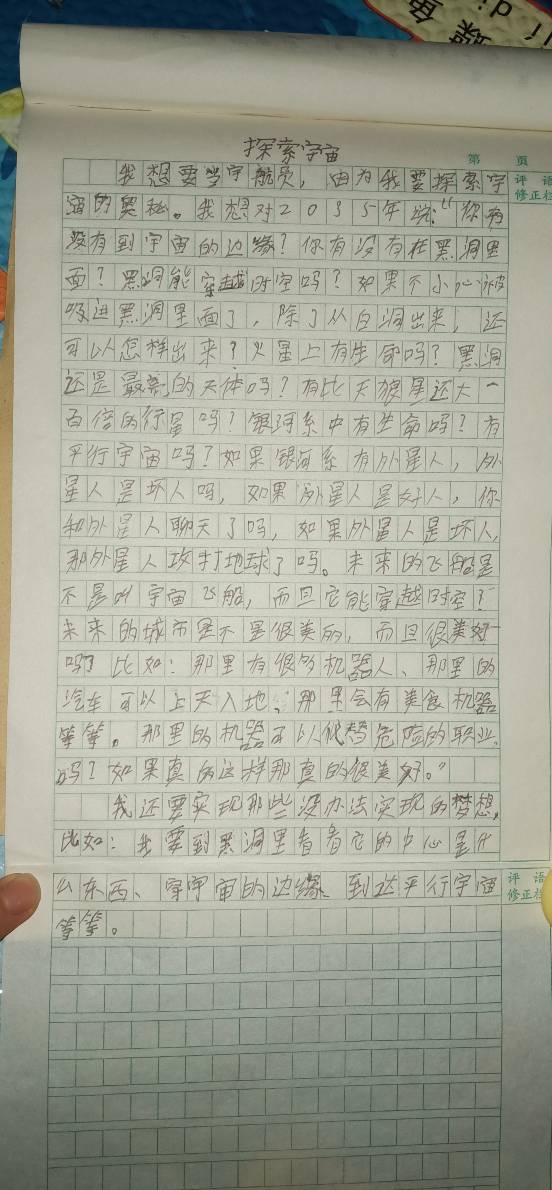 蝶 鱼
dié
探索宇宙
第 页
评 语
修正栏
我想要当宇航员，因为我要探索宇
宙的奥秘。我想对2035年说：“你有
没有到宇宙的边缘？你有没有在黑洞里
面？黑洞能穿越时空吗？如果不小心被
吸进黑洞里面了，除了从白洞出来，还
可以怎样出来？火星上有生命吗？黑洞
还是最亮的天体吗？有比天狼星还大一
百倍的行星吗？银河系中有生命吗？有
平行宇宙吗？如果银河系有外星人，外
星人是坏人吗，如果外星人是好人，你
和外星人聊天了吗，如果外星人是坏人，
那外星人攻打地球了吗。未来的飞船是
不是叫宇宙飞船，而且它能穿越时空？
未来的城市是不是很美丽，而且很美好
吗？比如：那里有很多机器人、那里的
汽车可以上天入地、那里会有美食机器
等等。那里的机器可以代替危险的职业
吗？如果真的这样那真的很美好。”
我还要实现那些没办法实现的梦想，
比如：我要到黑洞里看看它的中心是什
么东西、穿宇宙的边缘、到达平行宇宙
等等。
评 语
修正栏